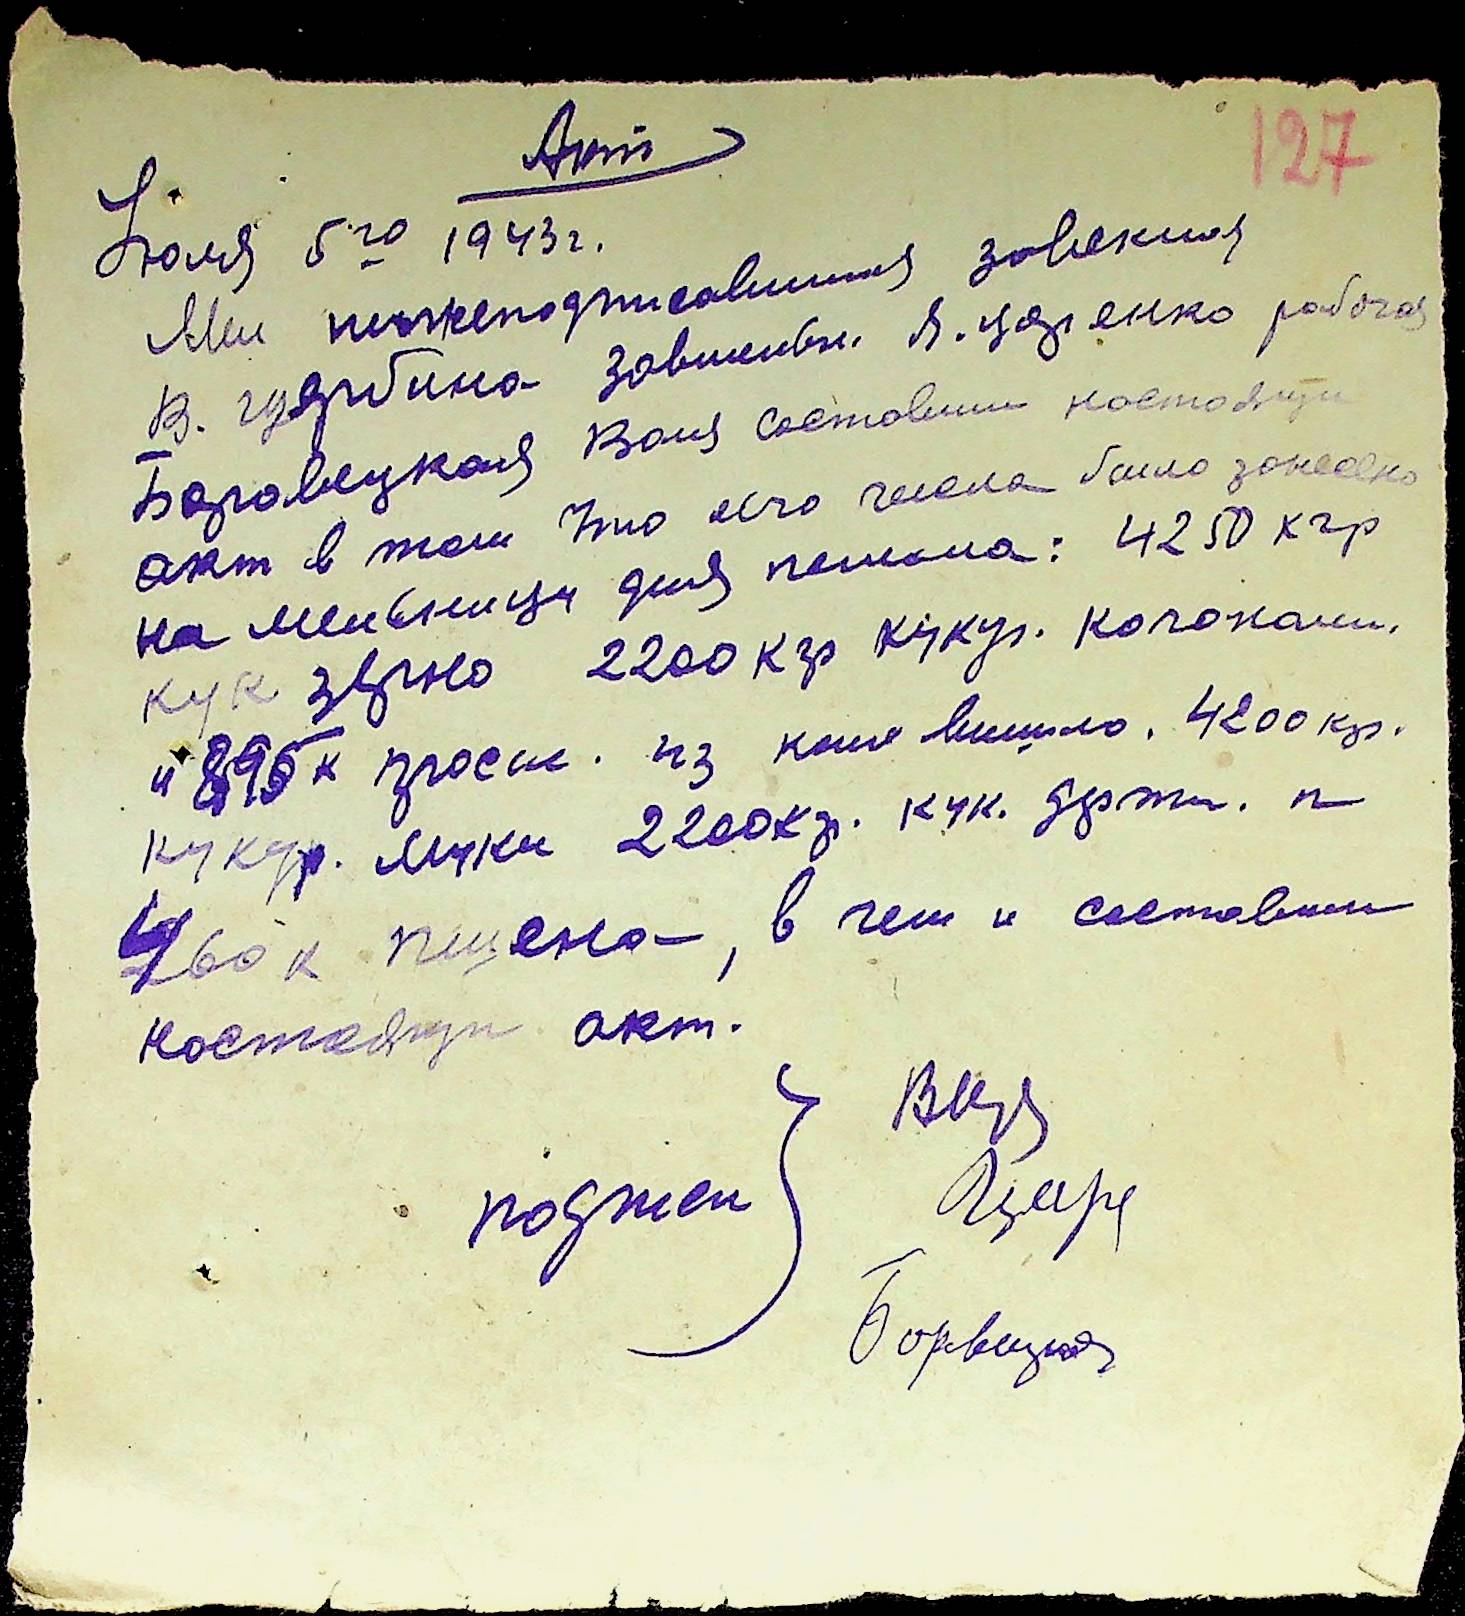 Акт
127
Июля 5го 1943г.
Ми нижеподписавшиися
В. завмельн. рабочая
Баровецкая Валя составили настоящи
акт в том что сего числа било завезено
на мельницу для помола: 4250 кгр
кук зерно 2200 кгр кукур. кочонами.
и 895 к просы. из коих вишло. 4200 кгр.
кукур. муки 2200 кгр. кук. дерти. и
460 к пшена, в чем и составили
настоящи акт.
подписи
Боровецкая